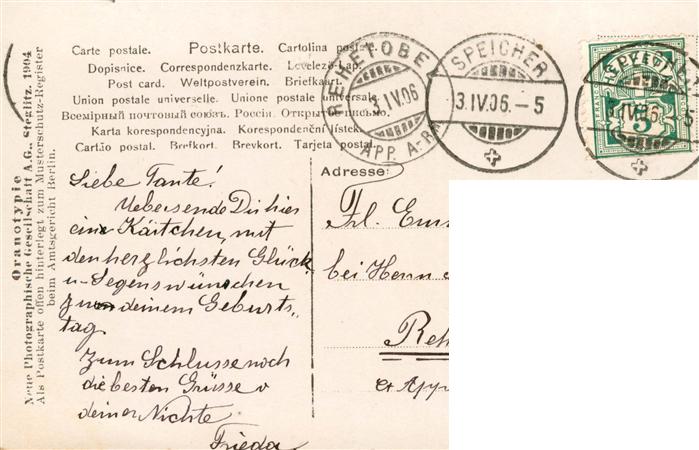 Oranotypie
Neue Photographische Gesellschaft A.G., Steglitz. 1904
Als Postkarte offen hinterlegt zum Musterschutz-Register
beim Amtsgericht Berlin.
Carte postale. Postkarte. Cartolina postale.
Dopisnice. Correspondenzkarte. Levelező-Lap.
Post card. Weltpostverein. Briefkaart.
Union postale universelle. Unione postale universale
Всемірный почтовый союзъ. Россіи. Открытое письмо.
Karta korespondencyjna. Korespondenční lístek.
Cartão postal. Brefkort. Brevkort. Tarjeta postal.
REHETOBEL
3.IV.06
APP. A-RH
SPEICHER
3.IV.06.-5
SPEICHER
3.IV.06.-5
5
Liebe Tante!
Uebersende Dir hier
ein Kärtchen, mit
den herzlichsten Glück
u- Segenswünschen
zu deinem Geburts-
tag.
Zum Schlusse noch
die besten Grüsse v
deiner Nichte
Frieda
Adresse:
Frl. Em
bei Herrn
Reh
App